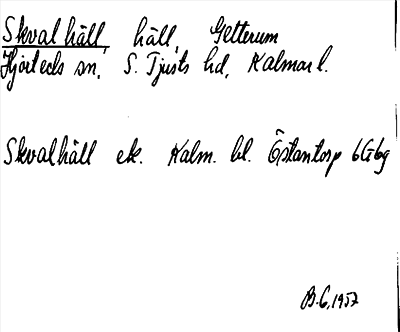 Skvalhäll, häll, Getterum
Hjorteds sn, S. Tjusts hd, Kalmar l.
Skvalhäll ek. Kalm. bl. Östantorp 6G6g
B.G. 1957